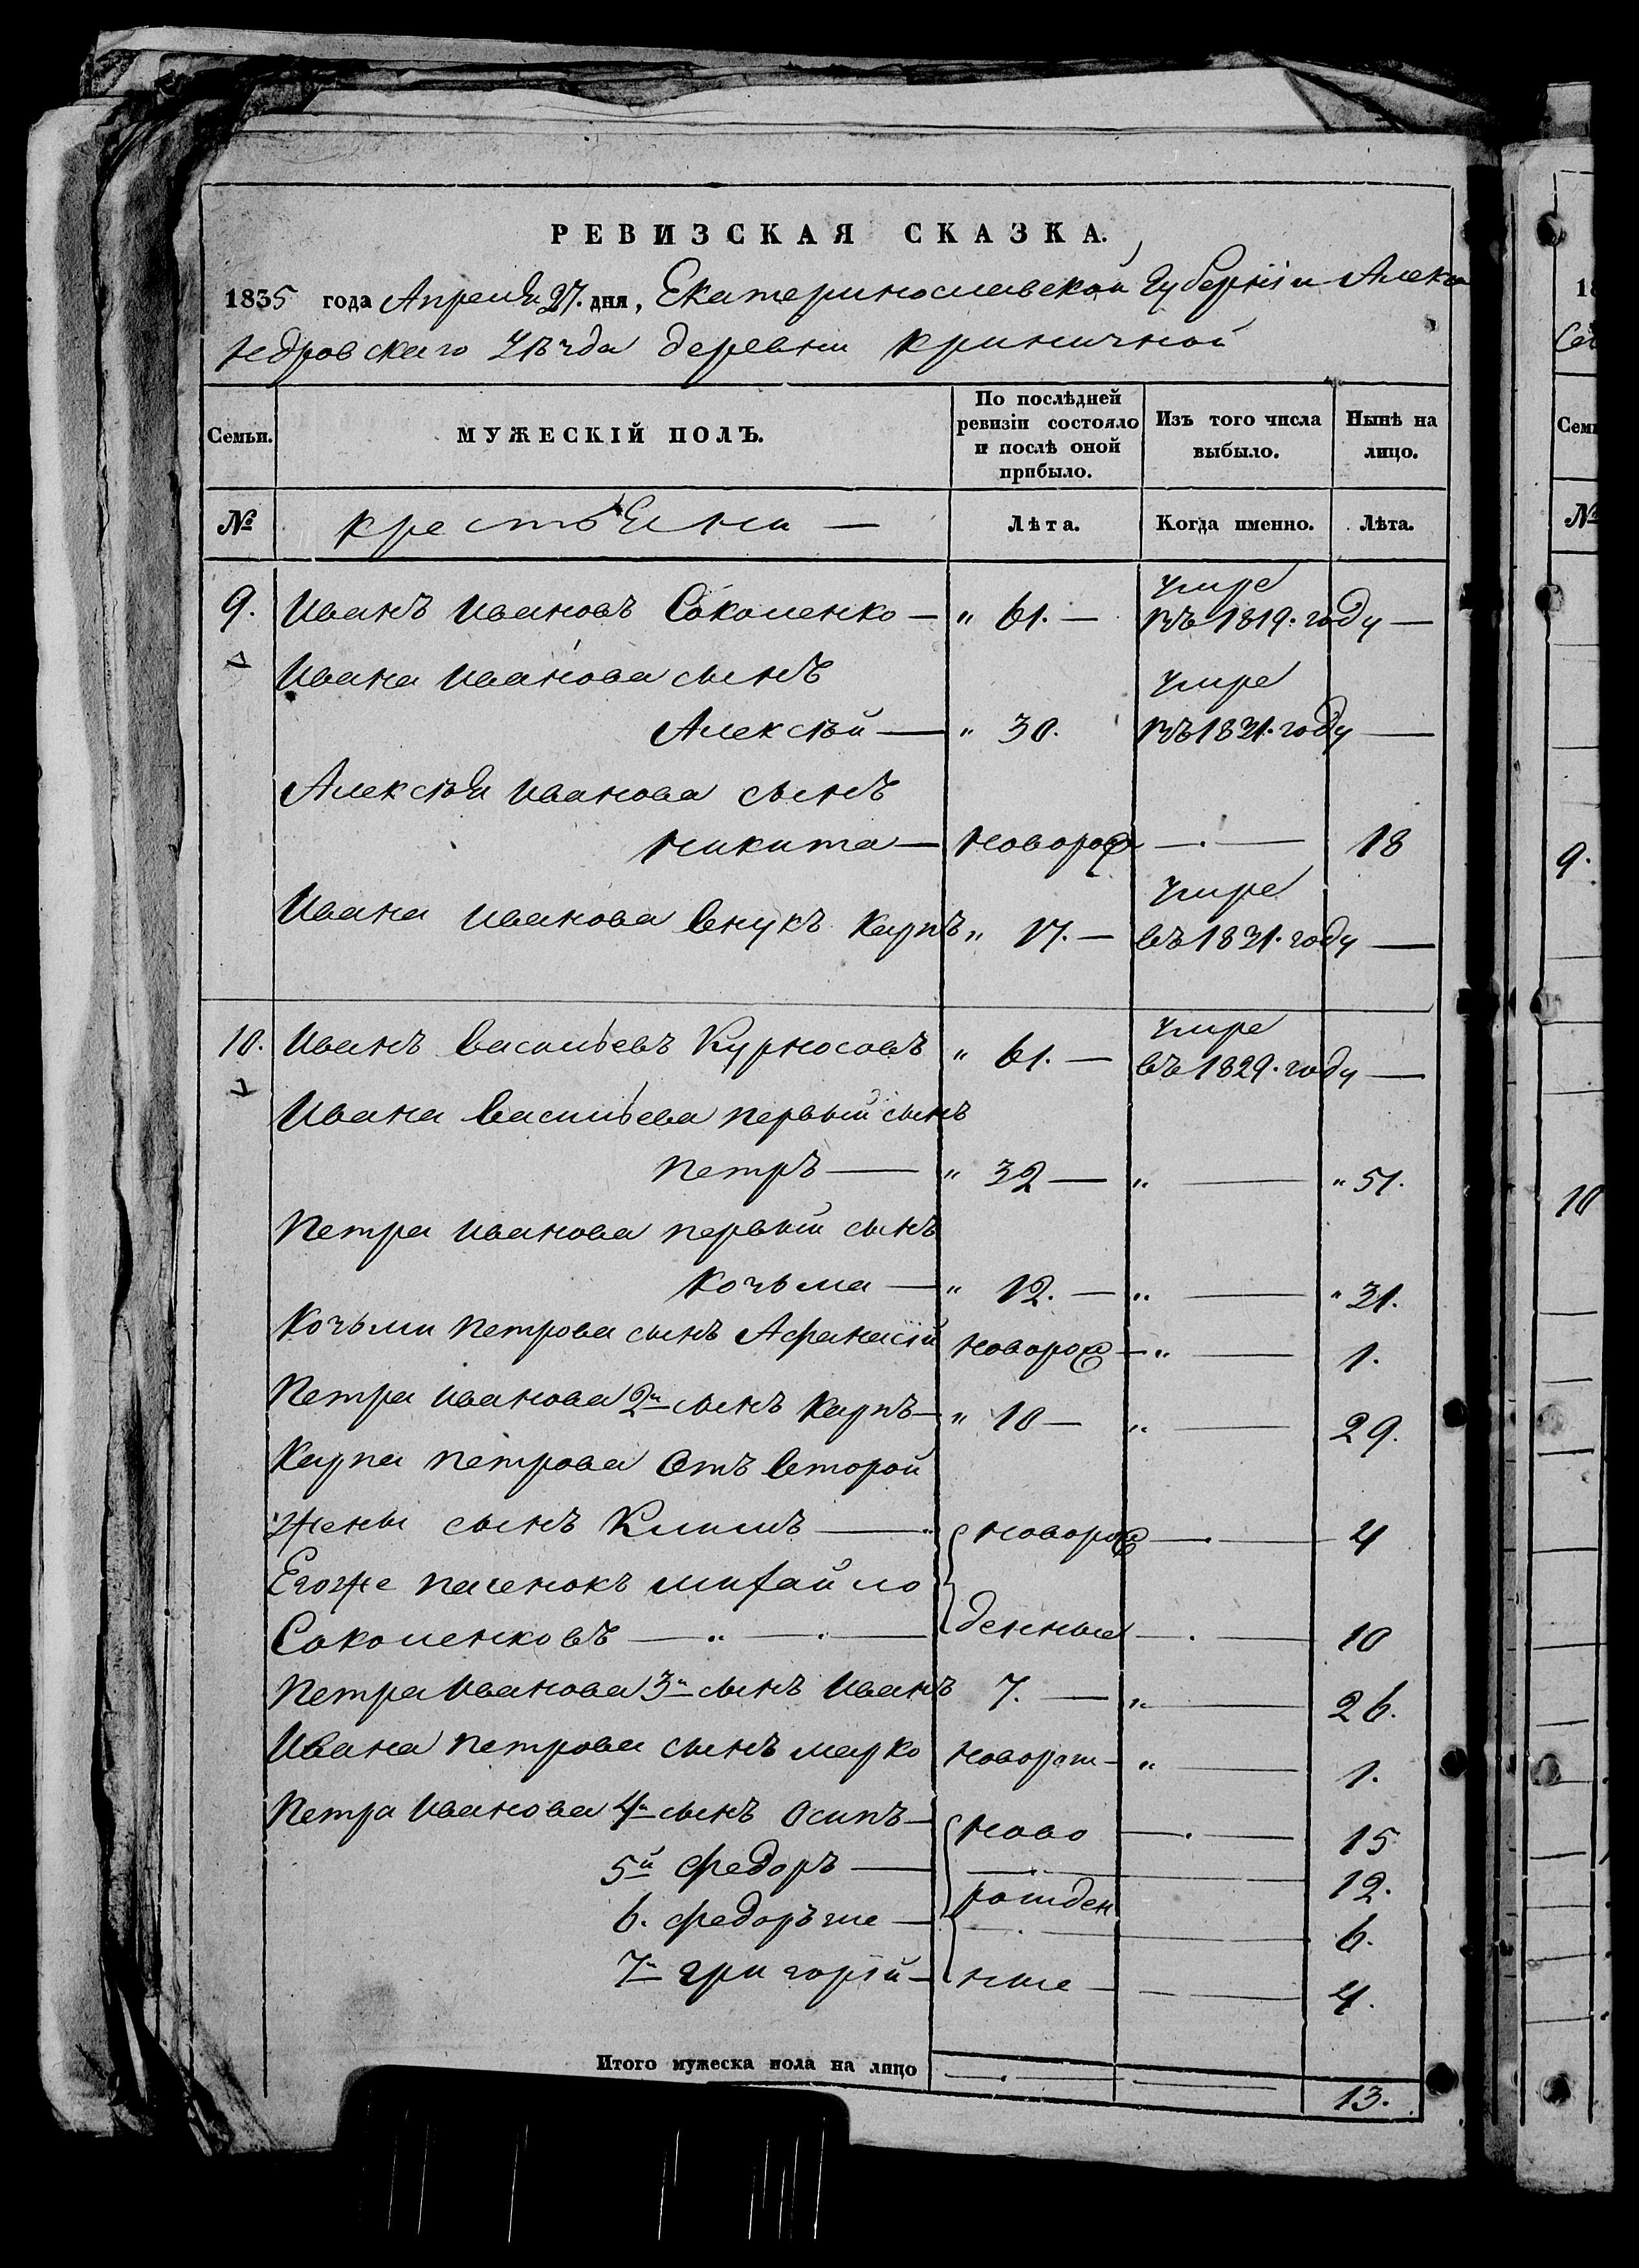 РЕВИЗСКАЯ СКАЗКА.
1835 года Апреля 27. дня, Екатеринославской Губерніи Алекса
ндровскаго Уѣзда деревни Криничной
Семьи. МУЖЕСКІЙ ПОЛЪ. По послѣдней ревизіи состояло и послѣ оной прибыло. Изъ того числа выбыло. Нынѣ на лицо.
№ крестьяни — Лѣта. Когда именно. Лѣта.
умре
9. Иванъ Ивановъ Соколенко — " 61. — въ 1819. году —
Ивана Иванова сынъ умре
Алексѣй — " 30. въ 1831. году —
Алексѣя Иванова сынъ
Никита — новорож — . — 18
умре
Ивана Иванова внукъ Карпъ " 17. — въ 1831. году —
умре
10. Иванъ Васильевъ Курносовъ " 61. — въ 1829. году —
Ивана Васильева первый сынъ
Петръ — " 32 — " — " 51.
Петра Иванова первый сынъ
Козьма — " 12. — " — " 31.
Козьми Петрова сынъ Афанасій новорож — " — 1.
Петра Иванова 2й сынъ Карпъ — " 10 — " — 29.
Карпа Петрова отъ второй
жены сынъ Климъ — новорож — . — 4
Егоже пасенокъ Михайло
Соколенковъ — " — . — денные — . — 10
Петра Иванова 3й сынъ Иванъ 7. — " — 26.
Ивана Петрова сынъ Марко новорож — " — 1.
Петра Иванова 4й сынъ Осипъ — ново — . — 15
5й Федоръ — . — 12.
рожден
6. Федоръ же — . — 6.
7й Григорій — ные — — 4.
Итого мужеска пола на лицо — . — — 13.
18
Семьи
№
9.
10